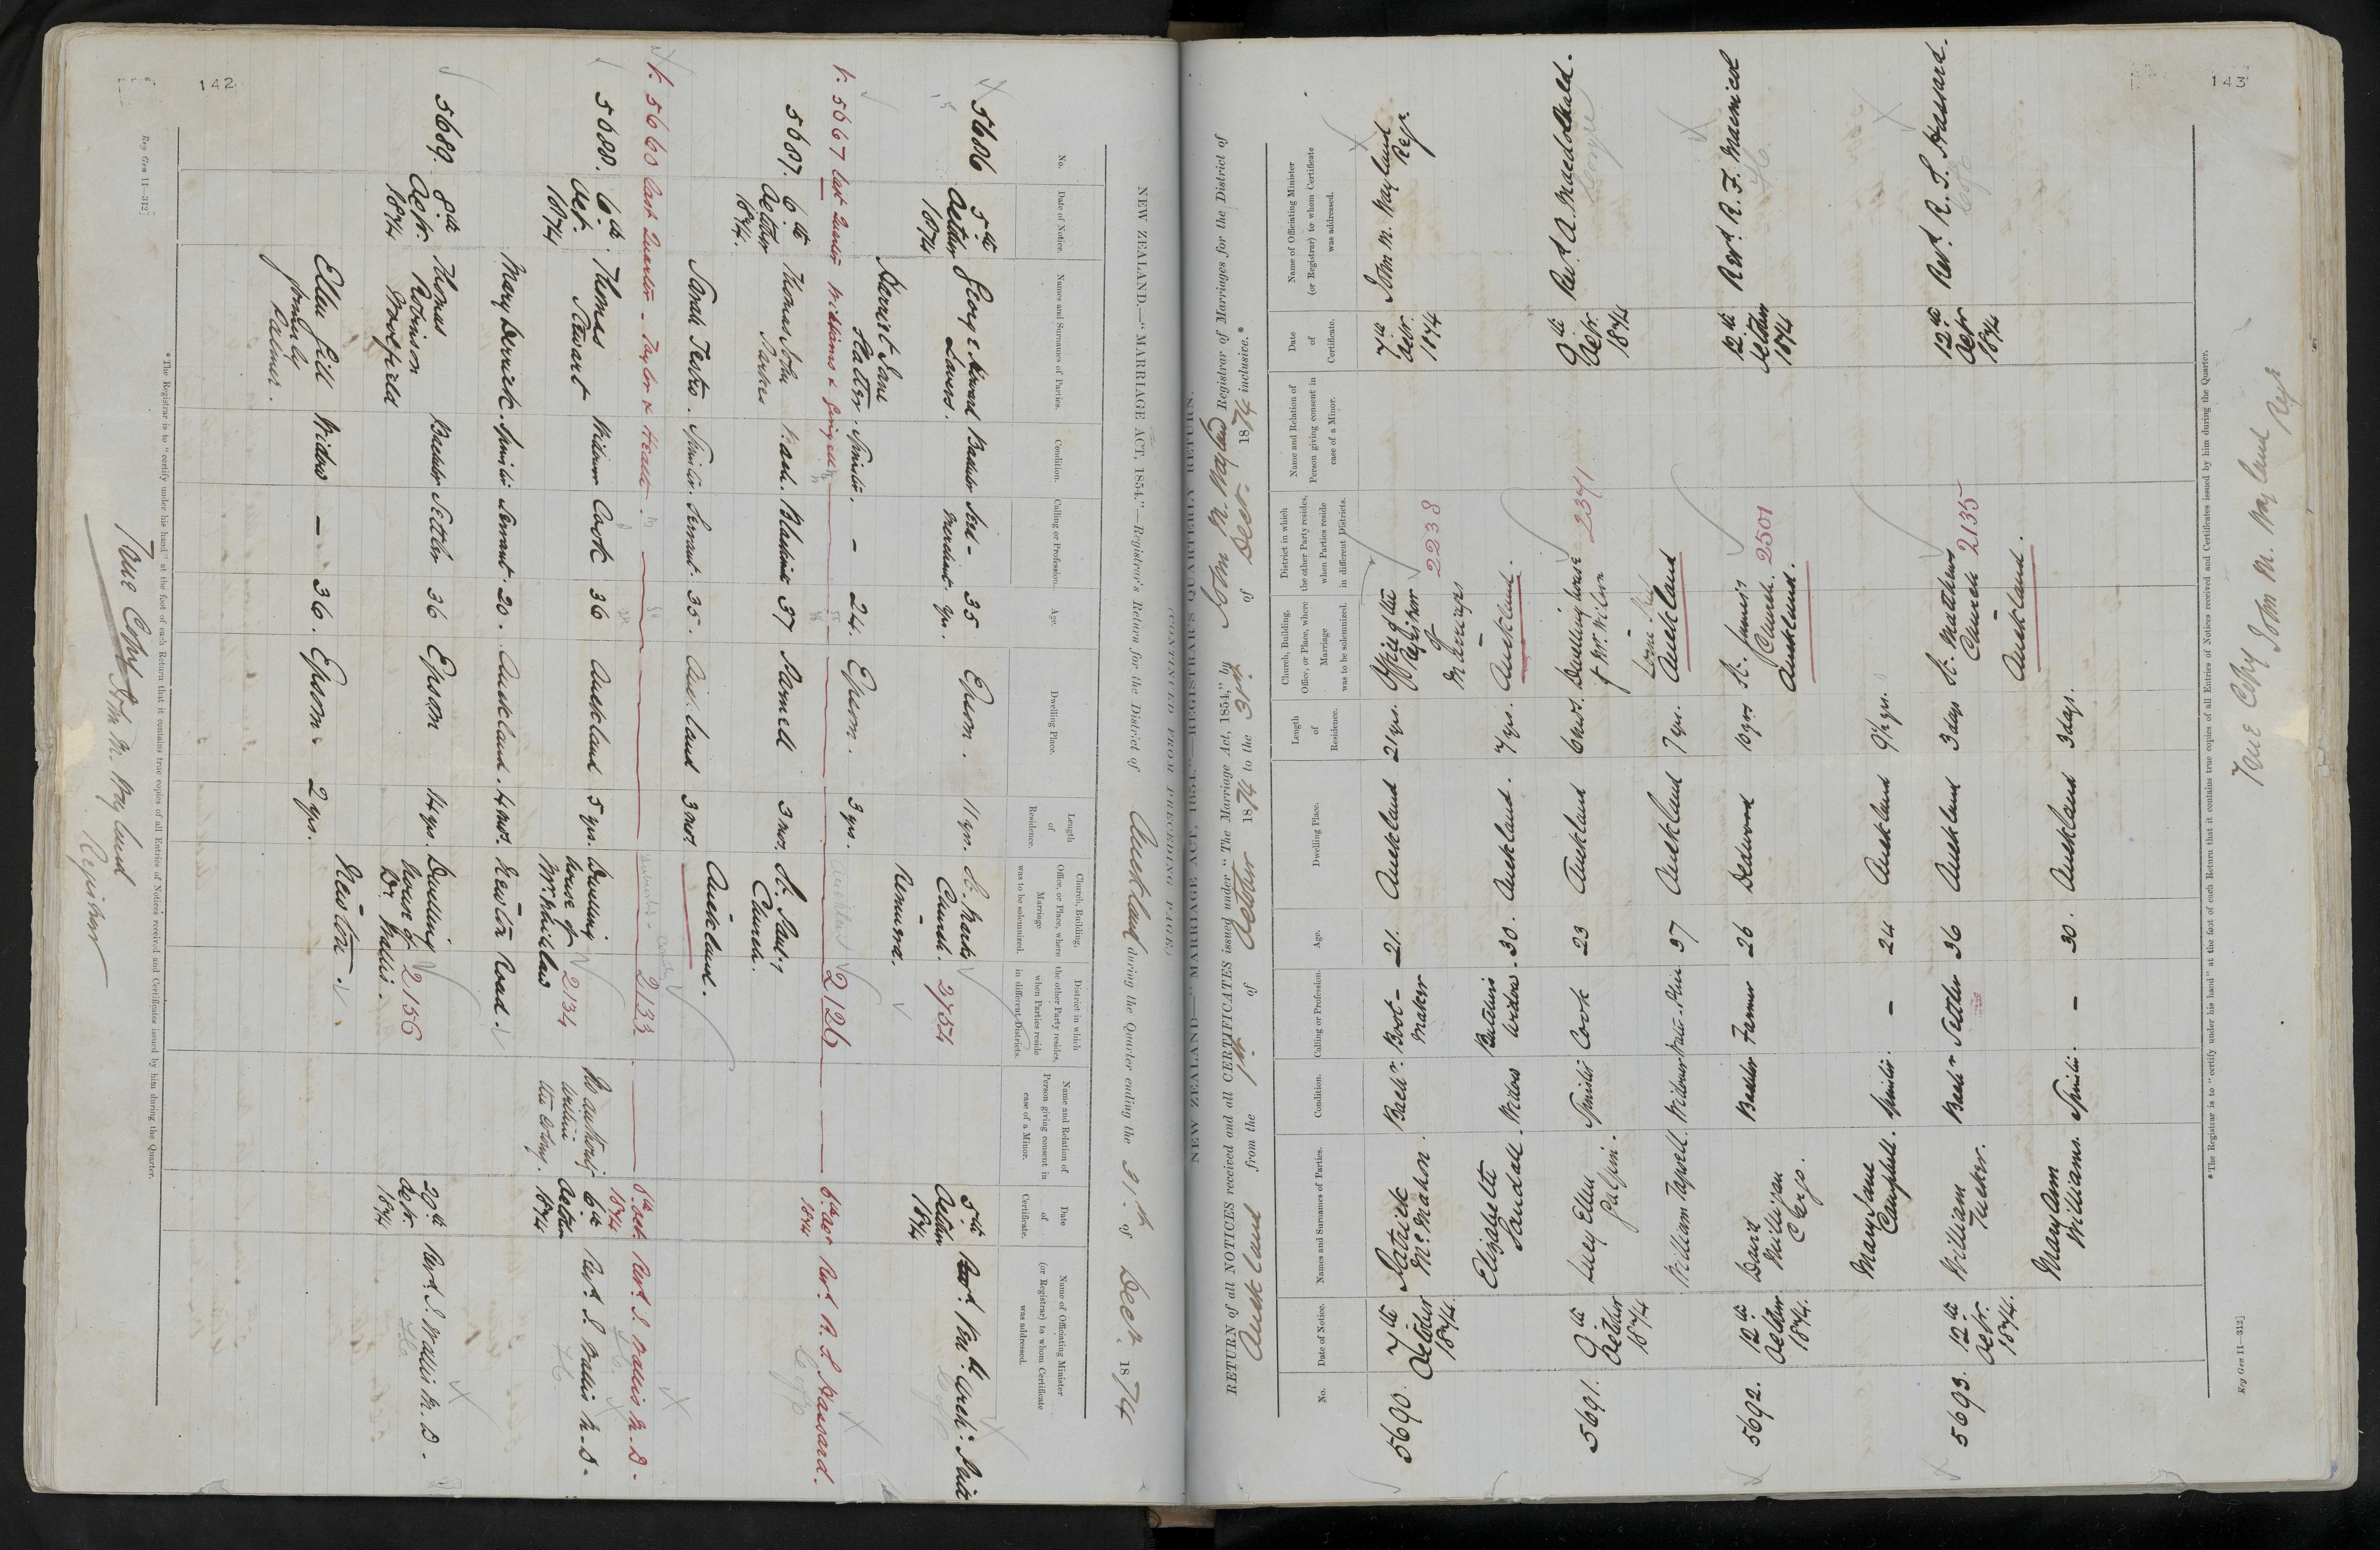 142
NEW ZEALAND.—"MARRIAGE ACT, 1854."—Registrar's Return for the District of Auckland during the Quarter ending the 31st of Decr. 1874
No.
Date of Notice.
Names and Surnames of Parties.
Condition.
Calling or Profession.
Age.
Dwelling Place.
Length of Residence.
Church, Building, Office, or Place, where Marriage was to be solemnized.
District in which the other Party resides, when Parties reside in different Districts.
Name and Relation of Person giving consent in case of a Minor.
Date of Certificate.
Name of Officiating Minister (or Registrar) to whom Certificate was addressed.
5686 5th October 1874
George Edward Bachelor 35 Epsom. 11 yrs. St. Marks Church. 2/054
Remuera.
5th October 1874
Harriet Jane Slatter. Spinster. – 24. Epsom. 3 yrs.
V. 5667 last Quarter Williams & 2126 Revd. R. S. Hassard.
5687. 6th October 1874.
Thomas John Parkes Bach. 37 Parnell 3 mos. St. Paul's Church.
Auckland.
Sarah Servant. 35. Auckland 3 mos.
V. 5660 last Quarter – Taylor & Heath. 2133 6th Oct. 1874 Revd. J. Wallis M.D.
5688. 6th Oct. 1874
Thomas Stewart Widower Cook 36 Auckland 5 yrs. Dwelling house of 2134
6th October 1874 Revd. J. Wallis M.D.
Mary Spinster Servant. 20. Auckland. 4 mos. Newton Road.
No authority within the Colony.
5689. 8th Octr. 1874
Thomas Robinson Bachelor Settler 36 Epsom 14 yrs. Dwelling house of Dr. Wallis. 2156
Newton.
29th Octr. 1874 Revd. J. Wallis M.D.
Ellen Gill formerly Palmer. Widow – 36. Epsom. 2 yrs.
*The Registrar is to "certify under his hand" at the foot of each Return that it contains true copies of all Entries of Notices received and Certificates issued by him during the Quarter.
Reg Gen 11—312]
True Copy John M. Wayland
Registrar
143
NEW ZEALAND.—"MARRIAGE ACT, 1854."—REGISTRAR'S QUARTERLY RETURN.
(CONTINUED FROM PRECEDING PAGE.)
RETURN of all NOTICES received and all CERTIFICATES issued under "The Marriage Act, 1854," by John M. Wayland Registrar of Marriages for the District of
Auckland from the 1st of October 1874 to the 31st of Decr. 1874 inclusive.*
No.
Date of Notice.
Names and Surnames of Parties.
Condition.
Calling or Profession.
Age.
Dwelling Place.
Length of Residence.
Church, Building, Office, or Place, where Marriage was to be solemnized.
District in which the other Party resides, when Parties reside in different Districts.
Name and Relation of Person giving consent in case of a Minor.
Date of Certificate.
Name of Officiating Minister (or Registrar) to whom Certificate was addressed.
5690. 7th October 1874.
Patrick McMahon. Bachr. Boot-maker 21. Auckland 21 yrs. Office of the Registrar of Marriages 2238
Auckland.
7th Octr. 1874 John M. Wayland Regr.
Elizabeth Sandall. Widow 30. Auckland. 7 yrs.
5691. 9th October 1874
Lucy Ellen Spinster Cook 23 Auckland 6 mos. Dwelling house of Mr. Wilson 2341
Auckland
9th Octr. 1874 Revd. A. Macdonald.
William Tapsell. Widower 37 Auckland 7 yrs.
5692. 12th October 1874.
David Milligan Bachelor Farmer 26 10 yrs St. James Church. 2501
Auckland.
12th October 1874 Revd. R. F. Macnicol
Mary Jane Campbell. Spinster. – 24 Auckland 9½ yrs.
5693. 12th Octr. 1874.
William Tucker. Bachr Settler 36 Auckland 3 days St. Matthews Church 2135
Auckland.
12th Octr 1874 Revd. R. S. Hassard.
Mary Ann Williams. Spinster. – 30. Auckland 3 days.
*The Registrar is to "certify under his hand" at the foot of each Return that it contains true copies of all Entries of Notices received and Certificates issued by him during the Quarter.
Reg Gen 11—312]
True Copy John M. Wayland
Regr